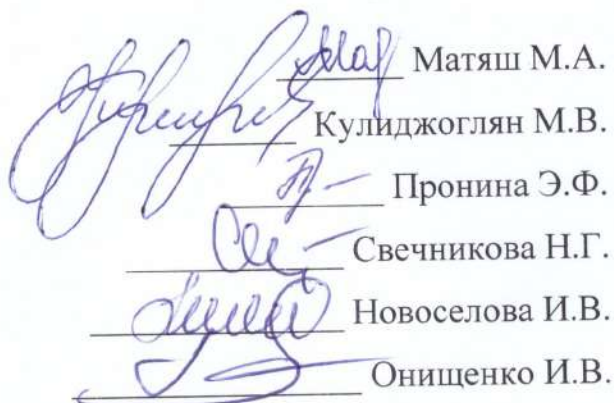 Матяш М.А.
Кулиджоглян М.В.
Пронина Э.Ф.
Свечникова Н.Г.
Новоселова И.В.
Онищенко И.В.